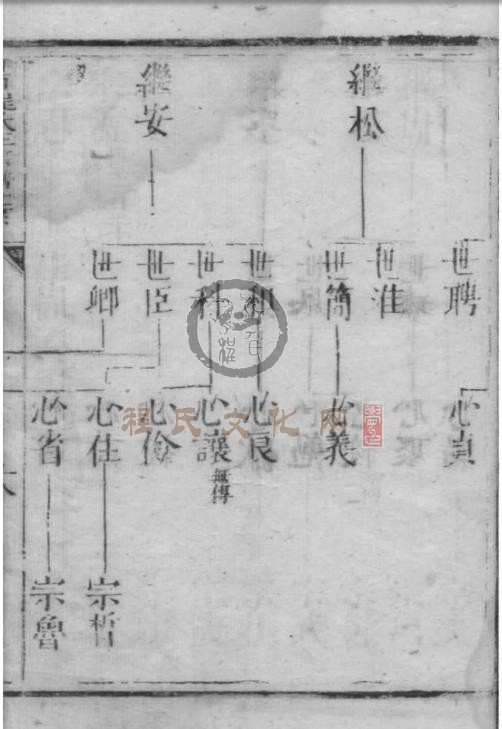 繼松
繼安
世聘
世淮
世簡
世和
世科
世臣
世卿
心貞
心義
心良
心讓
無傳
心儉
心仕
心省
宗哲
宗魯
程氏文化网